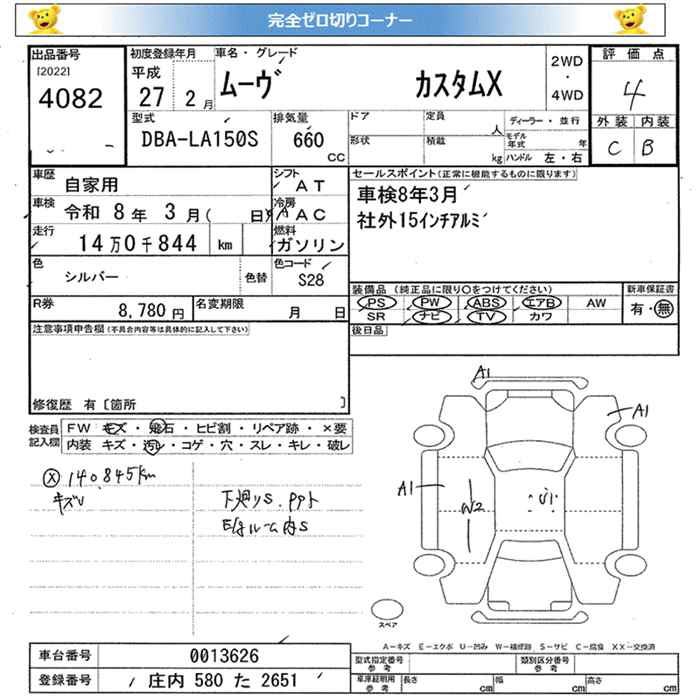 完全ゼロ切りコーナー
出品番号 初度登録年月 車名・グレード 2WD ・ 4WD 評価点
[2022] 4082 平成 27 2月 ムーヴ カスタムX 4
型式 排気量 ドア 定員 人 ディーラー・並行 外装 内装
DBA-LA150S 660 CC 形状 積載 kg モデル年式 年 ハンドル 左・右 C B
車歴 自家用 シフト AT セールスポイント(正常に機能するものに限ります)
車検 令和 8年 3月( 日) 冷房 AAC 車検8年3月
走行 14万0千844 km 燃料 ガソリン 社外15インチアルミ
色 シルバー 色替 色コード S28
装備品 (純正品に限り○をつけてください) 新車保証書
R券 8,780円 名変期限 月 日 PS PW ABS エアB AW 有・無
SR ナビ TV カワ
注意事項申告欄(不具合内容等は具体的に記入して下さい) 後日品
修復歴 有 [箇所 ]
検査員記入欄 FW キズ・飛石・ヒビ割・リペア跡・×要
内装 キズ・汚レ・コゲ・穴・スレ・キレ・破レ
A1
A1
A1
W2
U1
Ⓧ 140845km
キズU
下廻りS.
内S
スペア
A-キズ E-エクボ U-凹み W-補修跡 S-サビ C-腐食 XX-交換済
車台番号 0013626 型式指定番号 参考 類別区分番号 参考
登録番号 庄内 580 た 2651 車庫証明用 参考 長さ cm 幅 cm 高さ cm